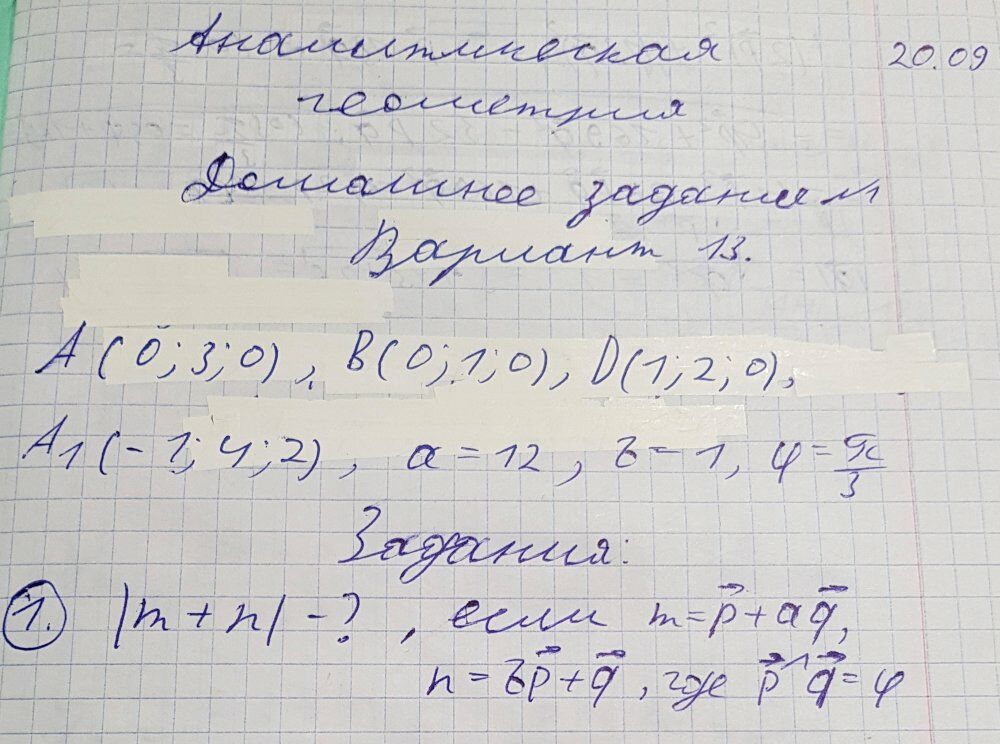 Аналитическая 20.09
геометрия
Домашнее задание
Вариант 13.
A(0;3;0), B(0;1;0), D(1;2;0),
A1(-1;4;2), a=12, b=1, φ=π/3
Задания:
1. |m+n|-?, если m=p⃗+aq⃗,
n=bp⃗+q⃗, где p⃗^q⃗=φ